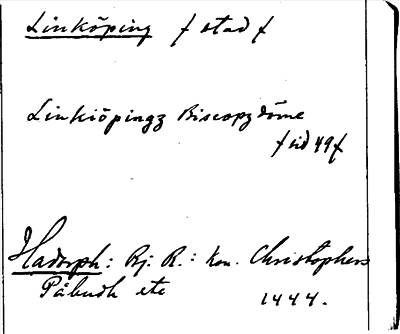 Linköping / stad /
Linkiöpingz Biscopzdöme
/ sid 49 /
Hadorph: Bj. R.: kon. Christophers
Påbudh etc 1444.